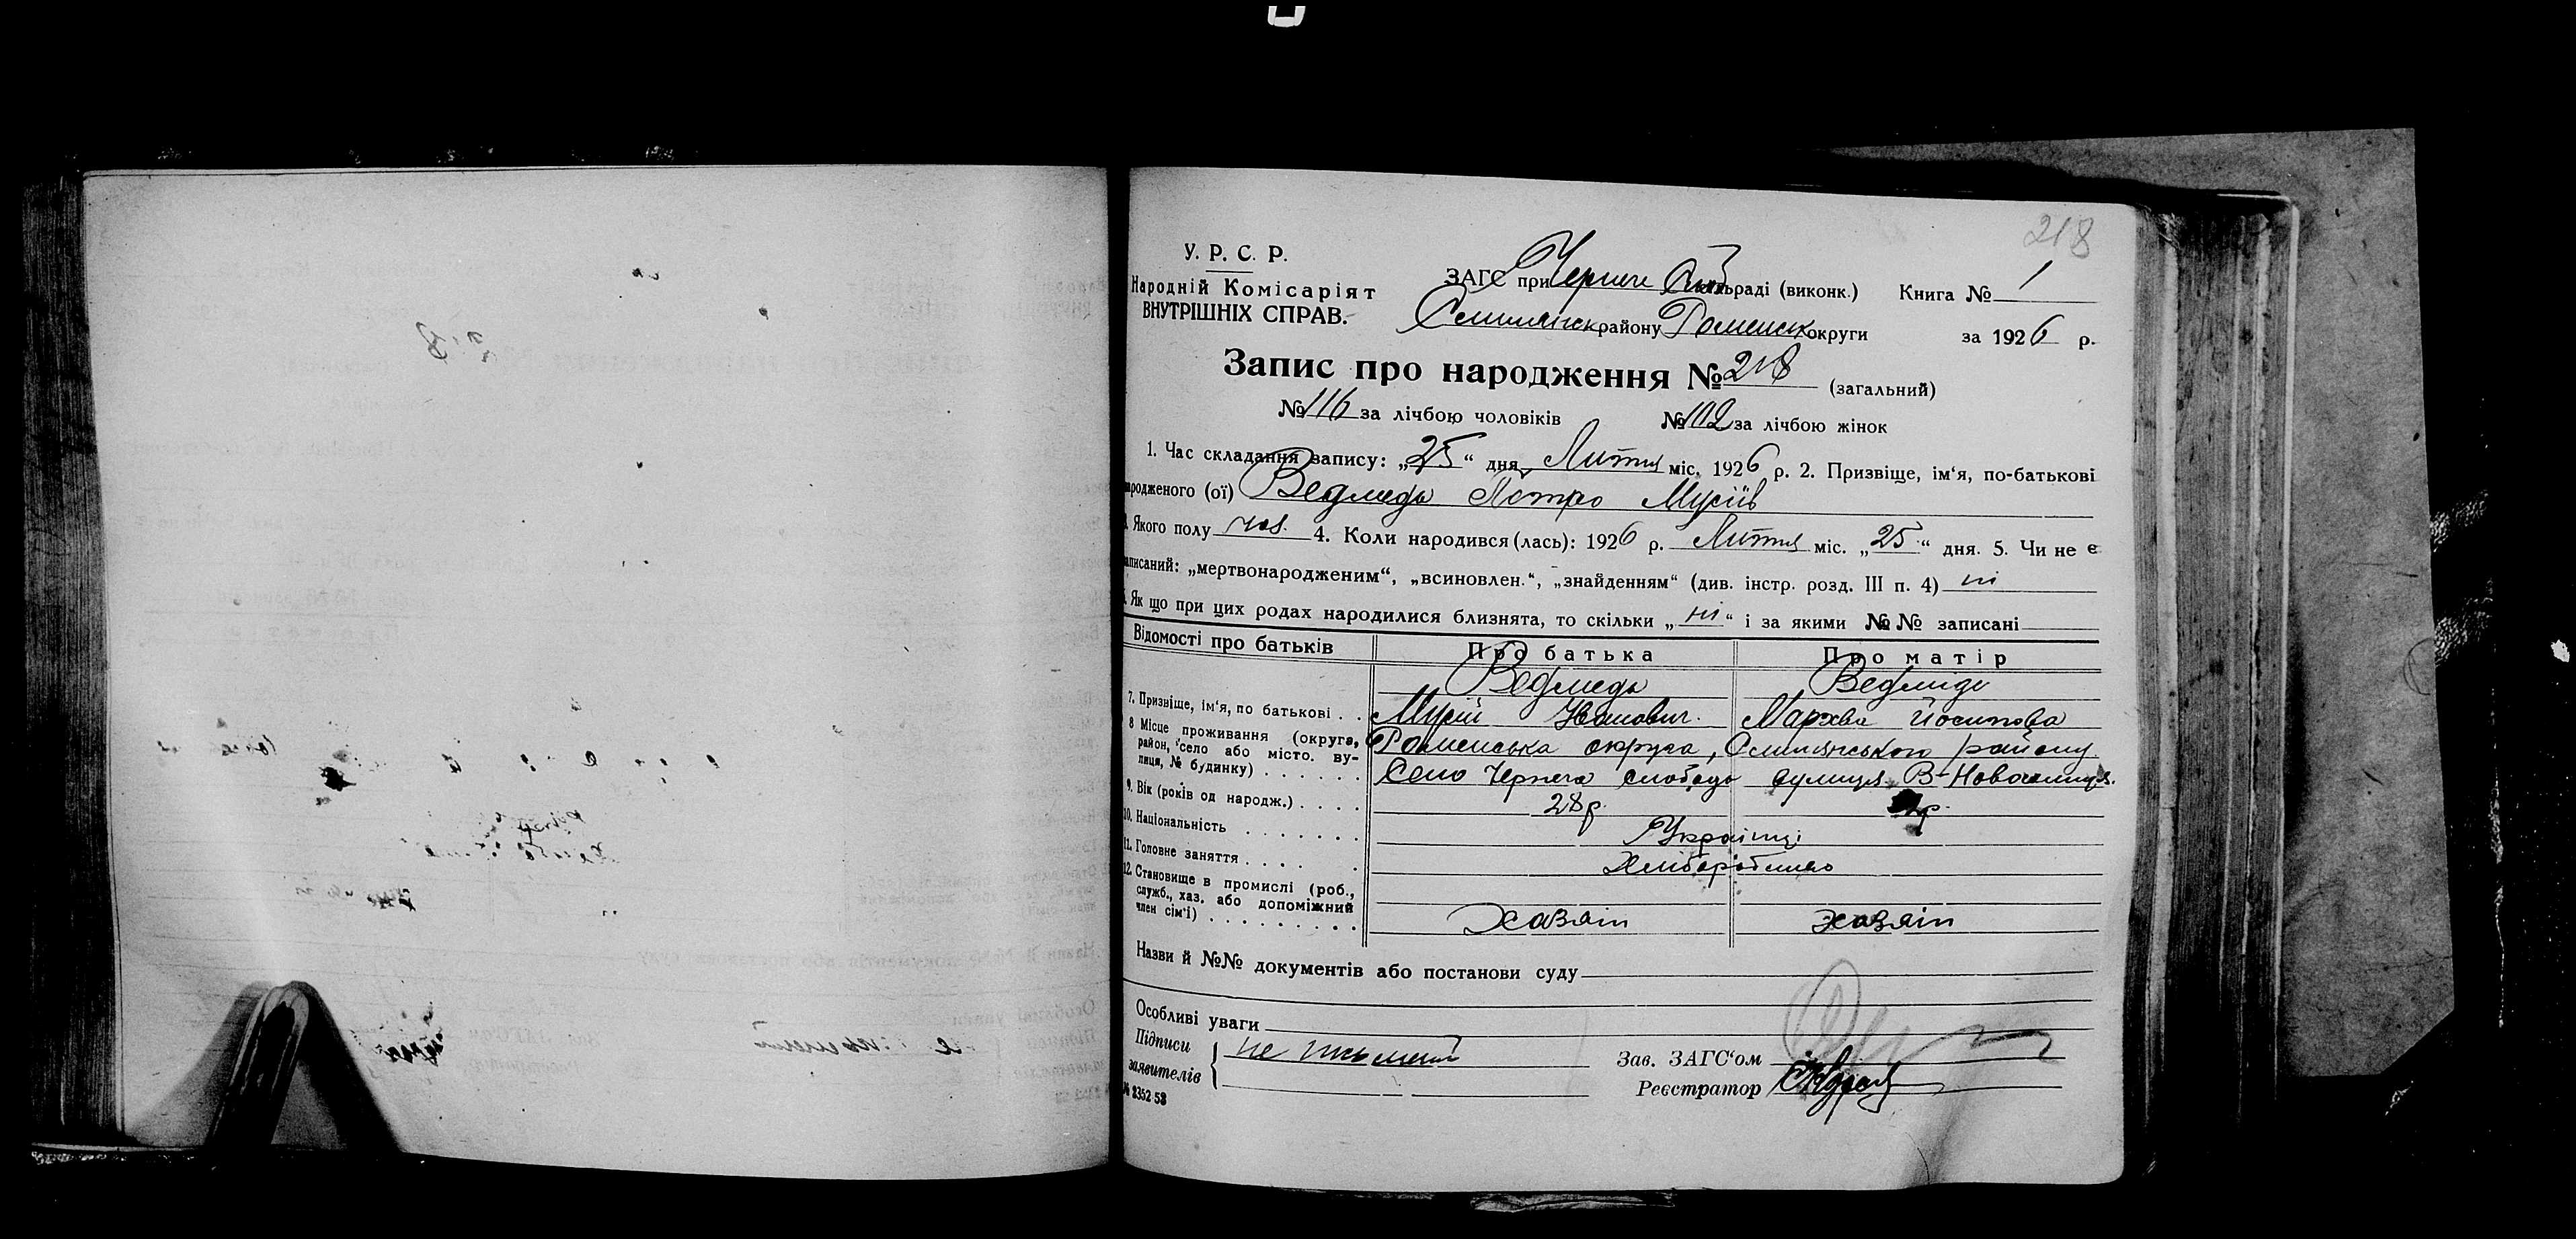 218
У. Р. С. Р.
Народній Комісаріят
ВНУТРІШНІХ СПРАВ.
ЗАГС при Чернечо Сл. сільраді (виконк.) Книга № 1
району Роменськ округи за 1926 р.
Запис про народження № 218 (загальний)
№ 116 за лічбою чоловіків № 102 за лічбою жінок
1. Час складання запису: „25“ дня Лютня міс. 1926 р. 2. Призвіще, ім‘я, по-батькові
народженого (ої) Ведмедь Петро Мусіїв
Якого полу чол. 4. Коли народився (лась): 1926 р. Лютня міс. „25“ дня. 5. Чи не є
записаний: „мертвонародженим“, „всиновлен.“, „знайденням“ (див. інстр. розд. III п. 4) ні
Як що при цих родах народилися близнята, то скільки „ні“ і за якими №№ записані
Відомості про батьків Про батька Про матір
7. Призвіще, ім‘я, по батькові . . Ведмедь Ведмідь
Мусій Іванович. Мархва Йосипова
8 Місце проживання (округа, район, село або місто. вулиця, № будинку) . . . . . . Роменська округа, Смілянського району
Село Чернеча слобода вулиця В-Новоселиця.
9. Вік (років од народж.) . . . . 28 р. р.
10. Національність . . . . . . . Українці
11. Головне заняття . . . . . Хліборобство
12. Становище в промислі (роб., служб., хаз. або допоміжний член сім‘ї) . . . . . . . . . Хазяїн хазяїн
Назви й №№ документів або постанови суду
Особливі уваги
Підписи заявителів { не письмений
Зав. ЗАГС‘ом
Реєстратор
№ 2352 53